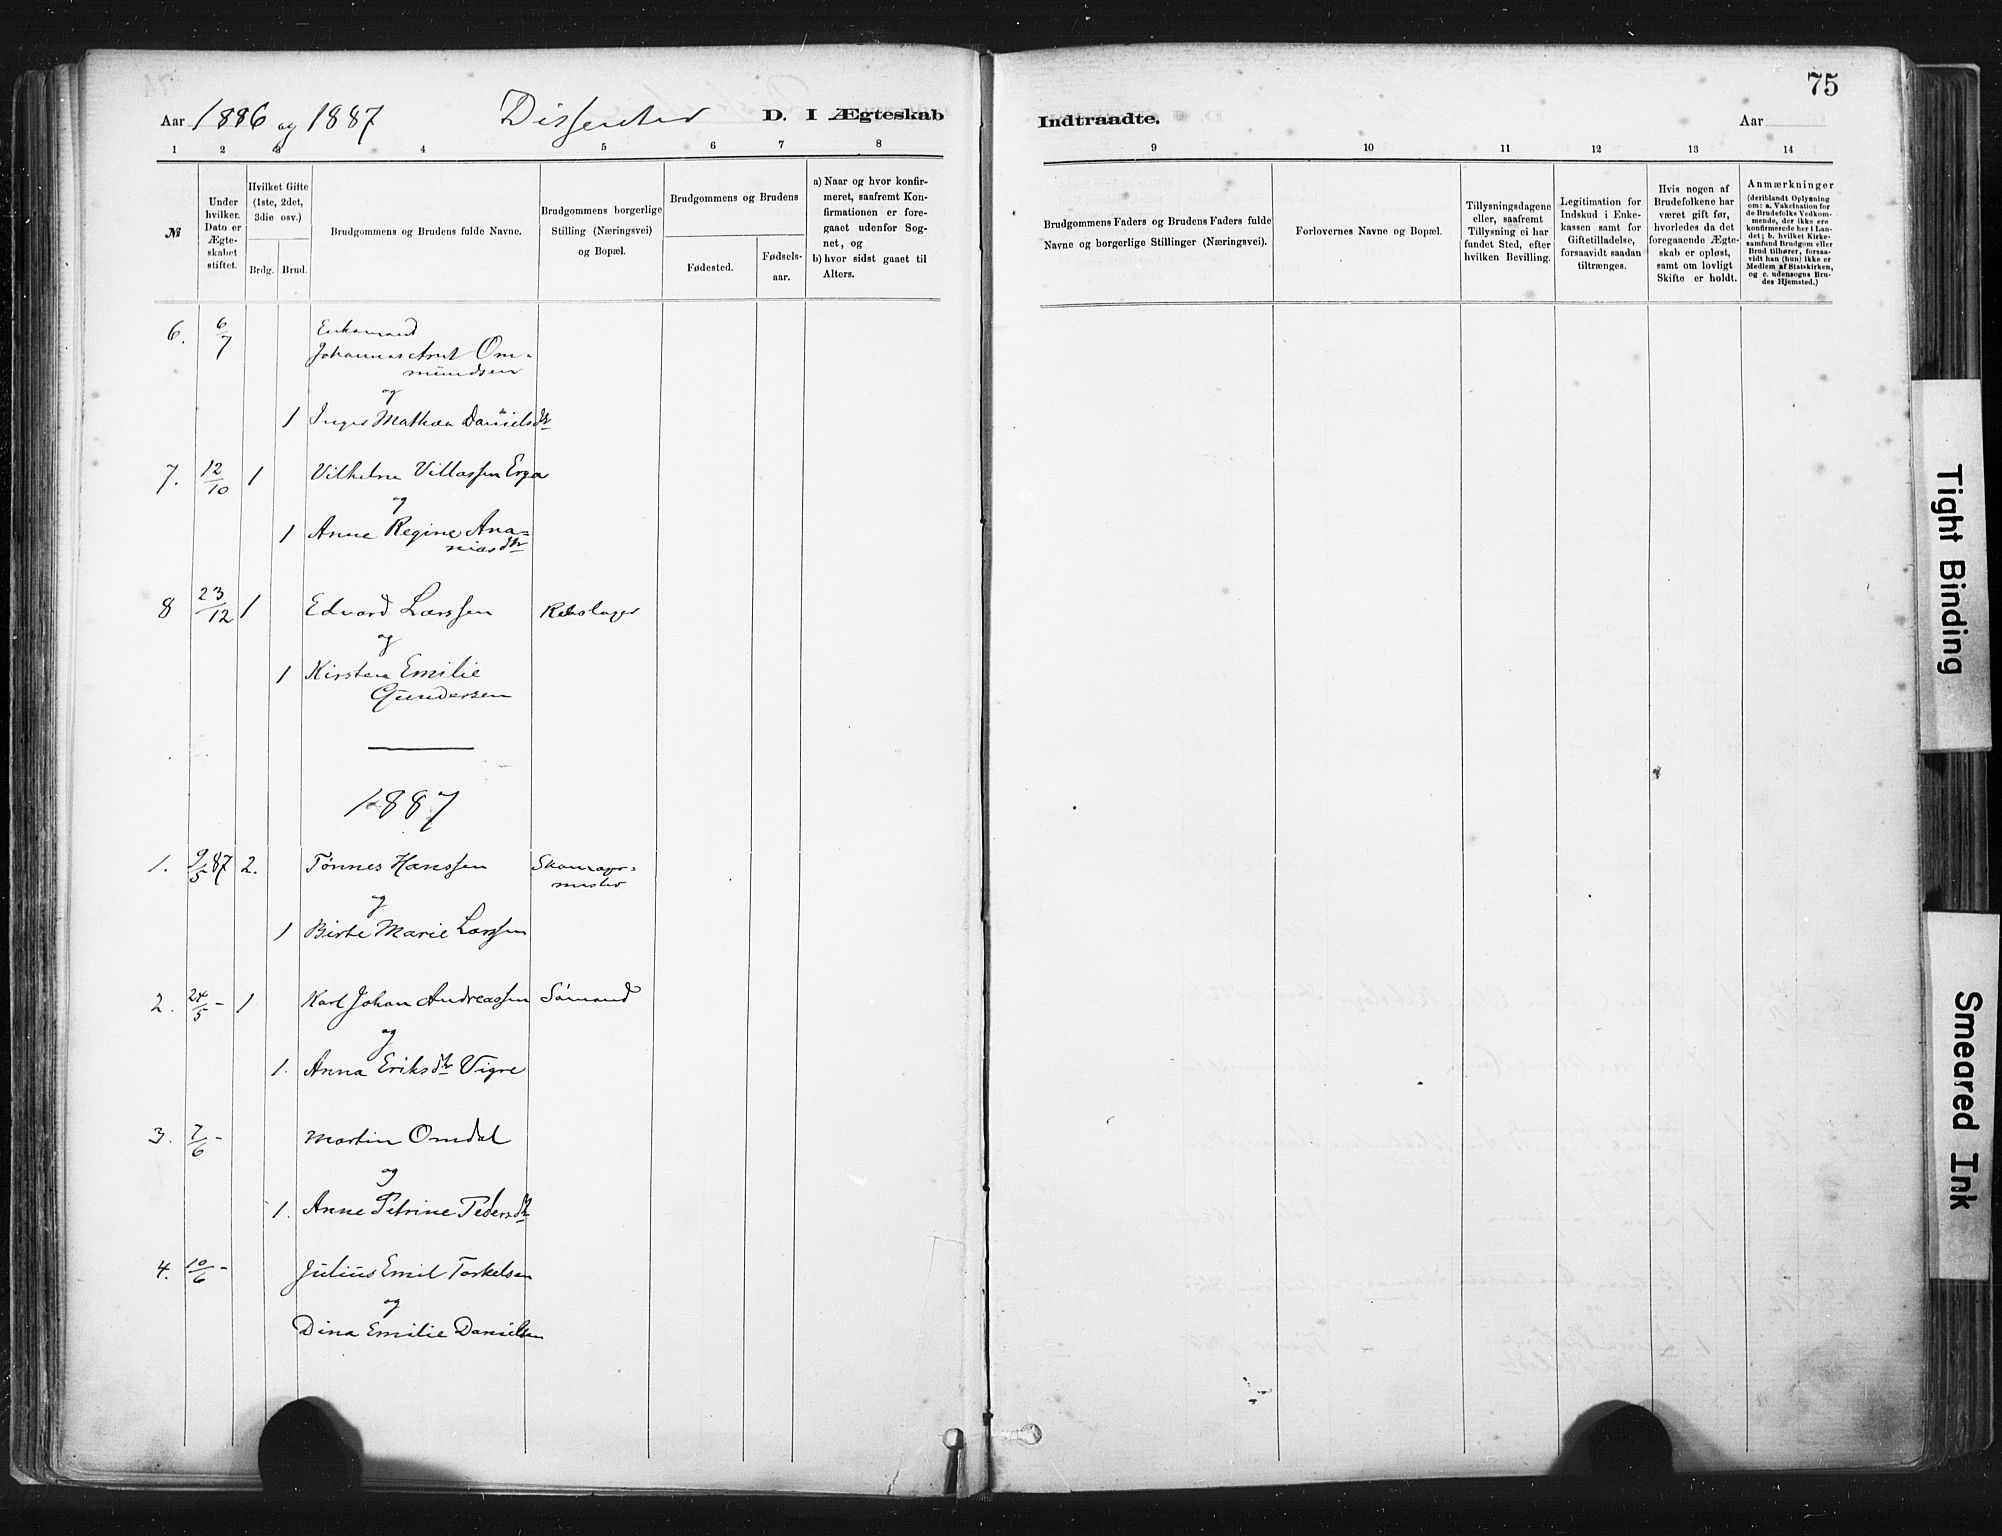 75
Aar 1886 og 1887 Dissenter D. I Ægteskab Indtraadte. Aar
1 2 3 4 5 6 7 8 9 10 11 12 13 14
№
Under
hvilken
Dato er
Ægte-
skabet
stiftet.
Hvilket Gifte
(1ste, 2det,
3die osv.)
Brdg. Brud.
Brudgommens og Brudens fulde Navne.
Brudgommens borgerlige
Stilling (Næringsvei)
og Bopæl.
Brudgommens og Brudens
Fødested.
Fødsels-
aar.
a) Naar og hvor konfir-
meret, saafremt Kon-
firmationen er fore-
gaaet udenfor Sog-
net, og
b) hvor sidst gaaet til
Alters.
Brudgommens Faders og Brudens Faders fulde
Navne og borgerlige Stillinger (Næringsvei).
Forlovernes Navne og Bopæl.
Tillysningsdagene
eller, saafremt
Tillysning ei har
fundet Sted, efter
hvilken Bevilling.
Legitimation for
Indskud i Enke-
kassen samt for
Giftetilladelse,
forsaavidt saadan
tiltrænges.
Hvis nogen af
Brudefolkene har
været gift før,
hvorledes da det
foregaaende Ægte-
skab er opløst,
samt om lovligt
Skifte er holdt.
Anmærkninger
(deriblandt Oplysning
om: a. Vakcination for
de Brudefolks Vedkom-
mende, der ikke ere
konfirmerede her i Lan-
det; b. hvilket Kirke-
samfund Brudgom eller
Brud tilhører, forsaa-
vidt han (hun) ikke er
Medlem af Statskirken,
og c. udensogns Bru-
des Hjemsted.)
6. 6/7 Enkemand
Johannes Arnt Om-
mundsen
og
1 Inger Mathea Danielsdtr
7. 12/10 1 Vilhelm Villassen Erga
og
1 Anne Regine Ana-
niasdtr
8 23/12 1 Edvard Larssen Rebslager
og
1 Kirsten Emilie
Gundersen
1887
1. 9/5 87 2. Tønnes Hanssen Skomager-
mester
og
1 Birte Marie Larssen
2. 24/5 - 1 Karl Johan Andreassen Sømand
og
1. Anna Eriksdtr Vigre
3. 7/6 - Martin Omdal
og
1. Anne Petrine Pedersdtr
4. 10/6 - Julius Emil Torkelsen
og
Dina Emilie Danielsen
Tight Binding
Smeared Ink